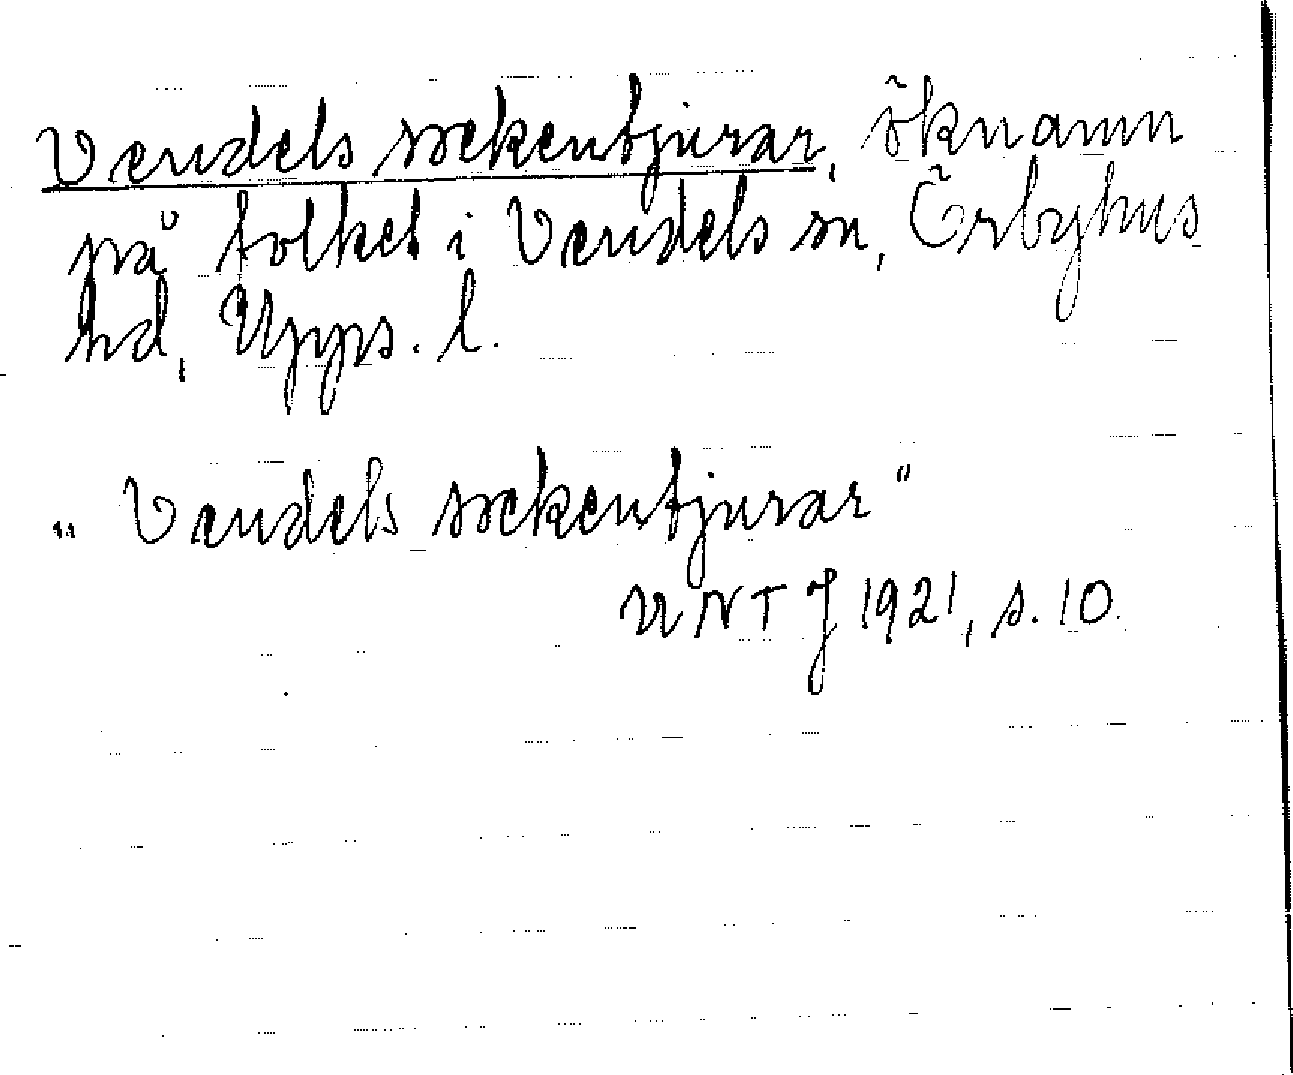 Vendels sockentjurar, öknamn
på folket i Vendels sn, Örbyhus
hd, Upps. l.
"Vendels sockentjurar"
UNT J 1921, s. 10.